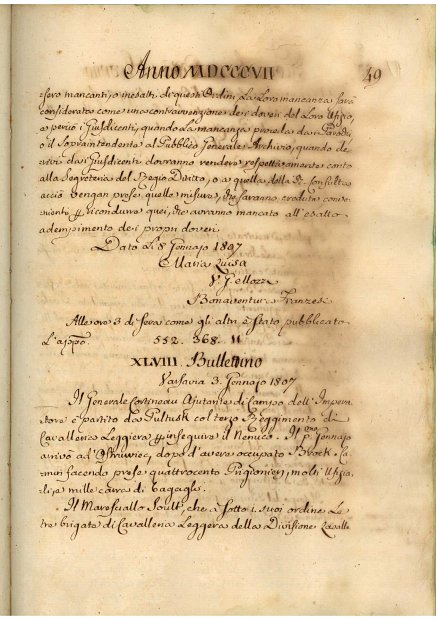 Anno MDCCCVII 49
sero mancanti, o inesatti di questi Ordini, la Loro mancanza sarà
considerata come una contravvenzione dei doveri del Loro Ufizio,
e perciò i Giusdicenti, quando la mancanza provenga dai Parrochi
o il Sopraintendente al Pubblico Generale Archivio, quando de-
rivi dai Giusdicenti dovranno rendere rispettivamente conto
alla Segreteria del Regio Diritto, o a quella della R. Consulta
acciò vengan prese quelle misure, che saranno credute conve-
nienti p ricondurre quei, che avranno mancato all'esatto
adempimento dei propri doveri.
Dato li 8 Gennajo 1807
Maria Luisa
V. G. Mozzi
Bonaventura Franzesi
Alle ore 3 di sera come gli altri è stato pubblicato
L'appo.
552. 368. 11
XLVIII Bullettino
Varsavia 3. Gennajo 1807
Il Generale Corbineau Ajutante di Campo dell'Impera-
tore è partito da Pultusk col terzo Reggimento di
Cavalleria Leggiera p inseguire il Nemico. Il p.mo Gennajo
arrivò ad Ostrowiec, dopo d'avere occupato Brock. Ca-
min facendo prese quattrocento Prigionieri, molti Ufizia-
li, e mille carra di bagagli.
Il Maresciallo Soult, che à sotto i suoi ordini le
tre brigate di Cavalleria Leggera della Divisione